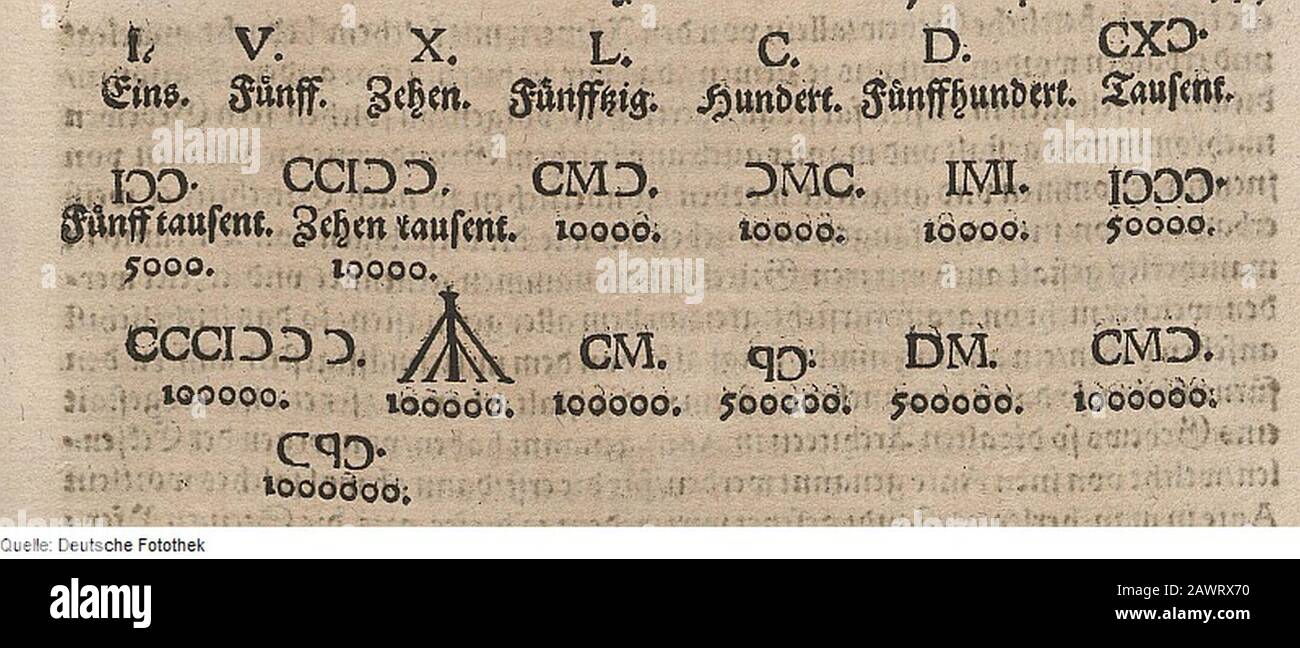 I. V. X. L. C. D. CXƆ.
Eins. Fünff. Zehen. Fünfftzig. Hundert. Fünffhundert. Tausent.
IƆƆ. CCIƆƆ. CMƆ. ƆMC. IMI. IƆƆƆ.
Fünff tausent. Zehen tausent. 10000. 10000. 10000. 50000.
5000. 10000.
CCCIƆƆƆ. CM. qƆ. DM. CMƆ.
100000. 100000. 100000. 500000. 500000. 1000000.
CqƆ.
1000000.
Quelle: Deutsche Fotothek
alamy
Image ID: 2AWRX70
www.alamy.com